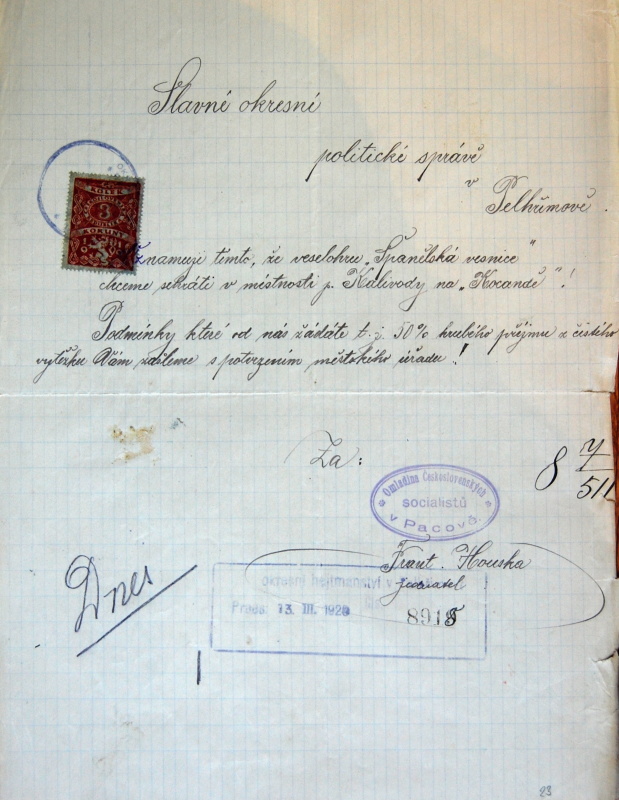 Slavné okresní
politické správě
v
Pelhřimově.
KOLEK
3
KORUNY
Oznamuji tímto, že veselohru „Španělská vesnice“
chceme sehráti v místnosti p. Kalivody na „Kocandě“!
Podmínky které od nás žádáte t. j. 50% hrubého příjmu z čistého
výtěžku Vám zašleme s potvrzením městského úřadu!
Za:
Omladina Československých
socialistů
v Pacově.
Frant. Houska
jednatel
okresní hejtmanství v
13. III. 1920
8915
Dnes
23